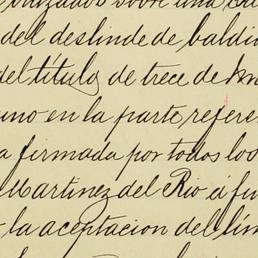 sobre una
del deslinde de baldi
del título de trece de
uno en la parte refere
a firmada por todos los
Martinez del Rio á fi
la aceptacion del lím